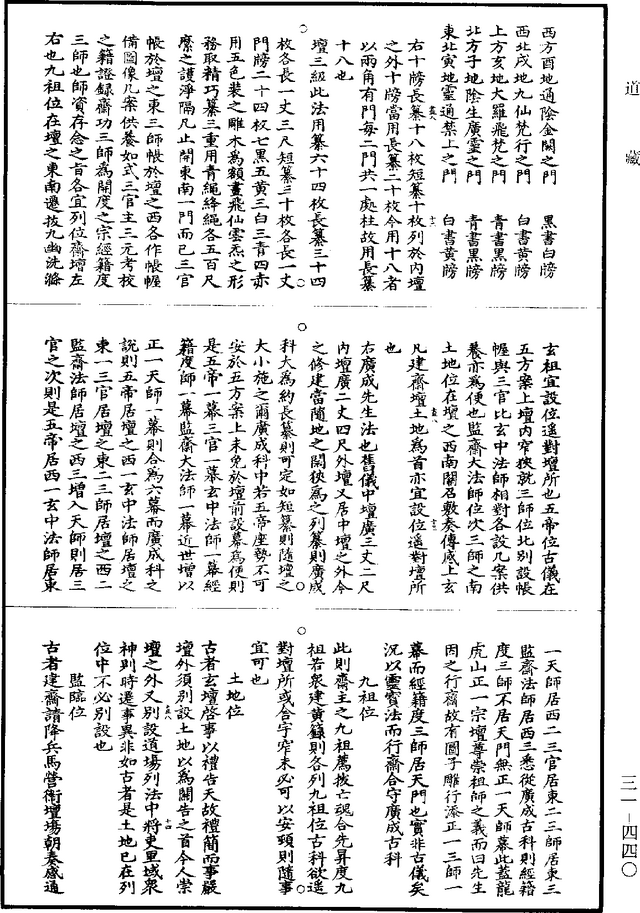 西方酉地通陰金闕之門　黑書白牓
西北戌地九仙梵行之門　白書黃牓
上方亥地大羅飛梵之門　青書黑牓
北方子地陰生廣靈之門　青書黑牓
東北寅地靈通禁上之門　白書黃牓
右十牓長纂十八枚短纂十枚列於內壇
之外十牓當用長纂二十枚今用十八者
以兩角有門每二門共一處柱故用長纂
十八也
壇三級此法用纂六十四枚長纂三十四
枚各長一丈三尺短纂三十枚各長一丈
門牓二十四枚七黑五黃三白三青四赤
用五色裝之雕木為額畫飛仙雲炁之形
務取精巧纂三重用青繩絳繩各五百尺
縻之護淨隔凡止開東南一門而已三官
帳於壇之東三師帳於壇之西各作帳幄
備圖像几案供養如式三官主三元考校
之籍證錄齋功三師為開度之宗經籍度
三師也師資存念之旨各宜列位齋壇左
右也九祖位在壇之東南遷拔九幽洗滌
玄祖宜設位遥對壇所也五帝位古儀在
五方案上壇内窄狹就三師位比別設帳
幄與三官比玄中法師相對各設几案供
養亦為便也監齋大法師位次三師之南
土地位在壇之西南關召敷奏傳咸上玄
凡建齋壇土地為首亦宜設位遥對壇所
也
右廣成先生法也舊儀中壇廣三丈二尺
內壇廣二丈四尺外壇又居中壇之外今
之修建當隨地之闊狹為之列纂則廣成
科大為約長纂則可定如短纂則隨壇之
大小施之爾廣成科中若五帝座勢不可
安於五方案上未免於壇前設幕為便則
是五帝一幕三官一幕玄中法師一幕經
籍度師一幕監齋大法師一幕近世增以
正一天師一幕則合為六幕而廣成科之
說則五帝居壇之西一玄中法師居壇之
東一三官居壇之東二三師居壇之西二
監齋法師居壇之西三增入天師則居三
官之次則是五帝居西一玄中法師居東
一天師居西二三官居東二三師居東三
監齋法師居西三悉從廣成古科則經籍
度三師不居天門無正一天師幕此蓋龍
虎山正一宗壇尊崇祖師之義而曰先生
因之行齋故有圓子雕行添正一三師一
幕而經籍度三師居天門也實非古儀矣
況以靈寶法而行齋合守廣成古科
九祖位
此則齋主之九祖薦拔六魂合先昇度九
祖若衆建黃籙則各列九祖位古科欲遥
對壇所或舍宇窄未必可以安頓則隨事
宜可也
土地位
古者玄壇啓事以禮告天故禮簡而事嚴
壇外須別設土地以為關告之首今人崇
壇之外又別設道場列法中將吏里域衆
神則時遷事異非如古者是土地已在列
位中不必別設也
監臨位
古者建齋請降兵馬營衞壇場朝奏感通
道藏
三一－四四〇